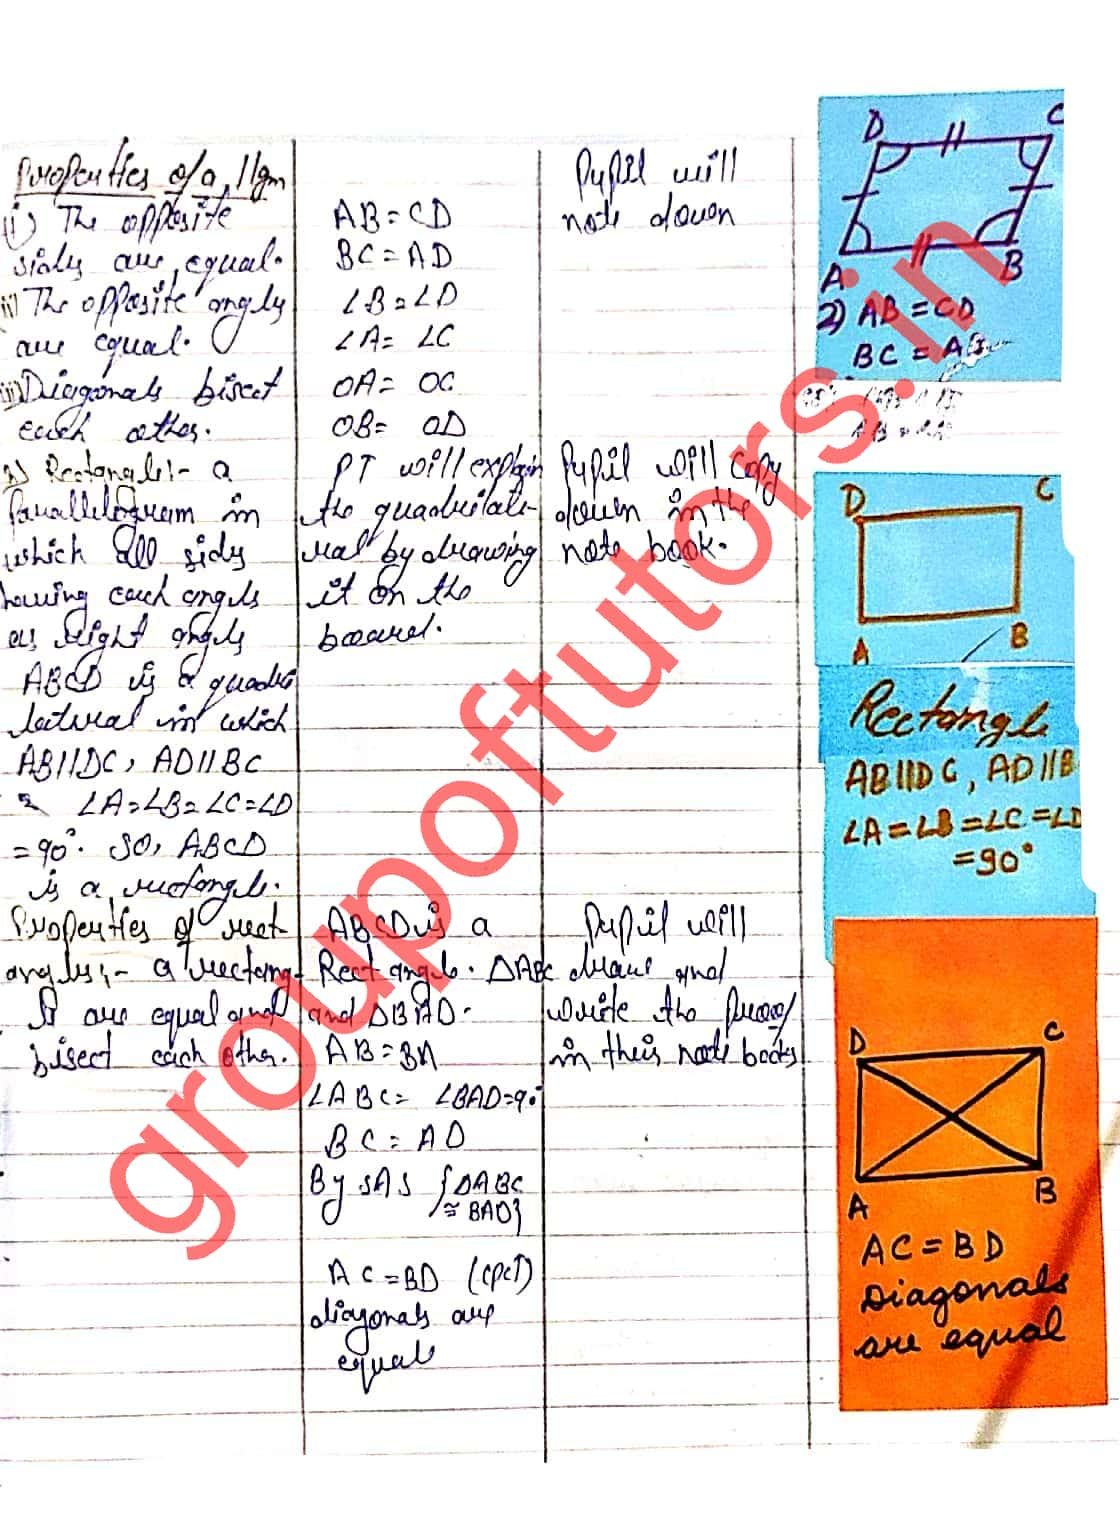 Properties of a ||gm
(i) The opposite
sides are equal.
ii) The opposite angles
are equal.
iii) Diagonals bisect
each other.
AB = CD
BC = AD
∠B = ∠D
∠A = ∠C
OA = OC
OB = OD
Pupil will
note down
D C
A B
2) AB = CD
BC = AD
Rectangle:- a
Parallelogram in
which all sides
having each angles
as right angles
ABCD is a quadri
lateral in which
AB||DC, AD||BC
∠A=∠B=∠C=∠D
=90°. SO, ABCD
is a rectangle.
PT will explain
the quadrilate-
ral by drawing
it on the
board.
Pupil will copy
down in the
note book.
D C
A B
Rectangle
AB||DC, AD||B
∠A=∠B=∠C=∠D
=90°
Properties of rect
angles:- a rectang-
are equal and
bisect each other.
ABCD is a
Rectangle. ΔABC
and ΔBAD.
AB = BA
∠ABC = ∠BAD=90
BC = AD
By SAS {ΔABC
≅ BAD}
AC = BD (CPCT)
diagonals are
equal
Pupil will
draw and
write the proof
in their note books
D C
A B
AC = BD
Diagonals
are equal
groupoftutors.in